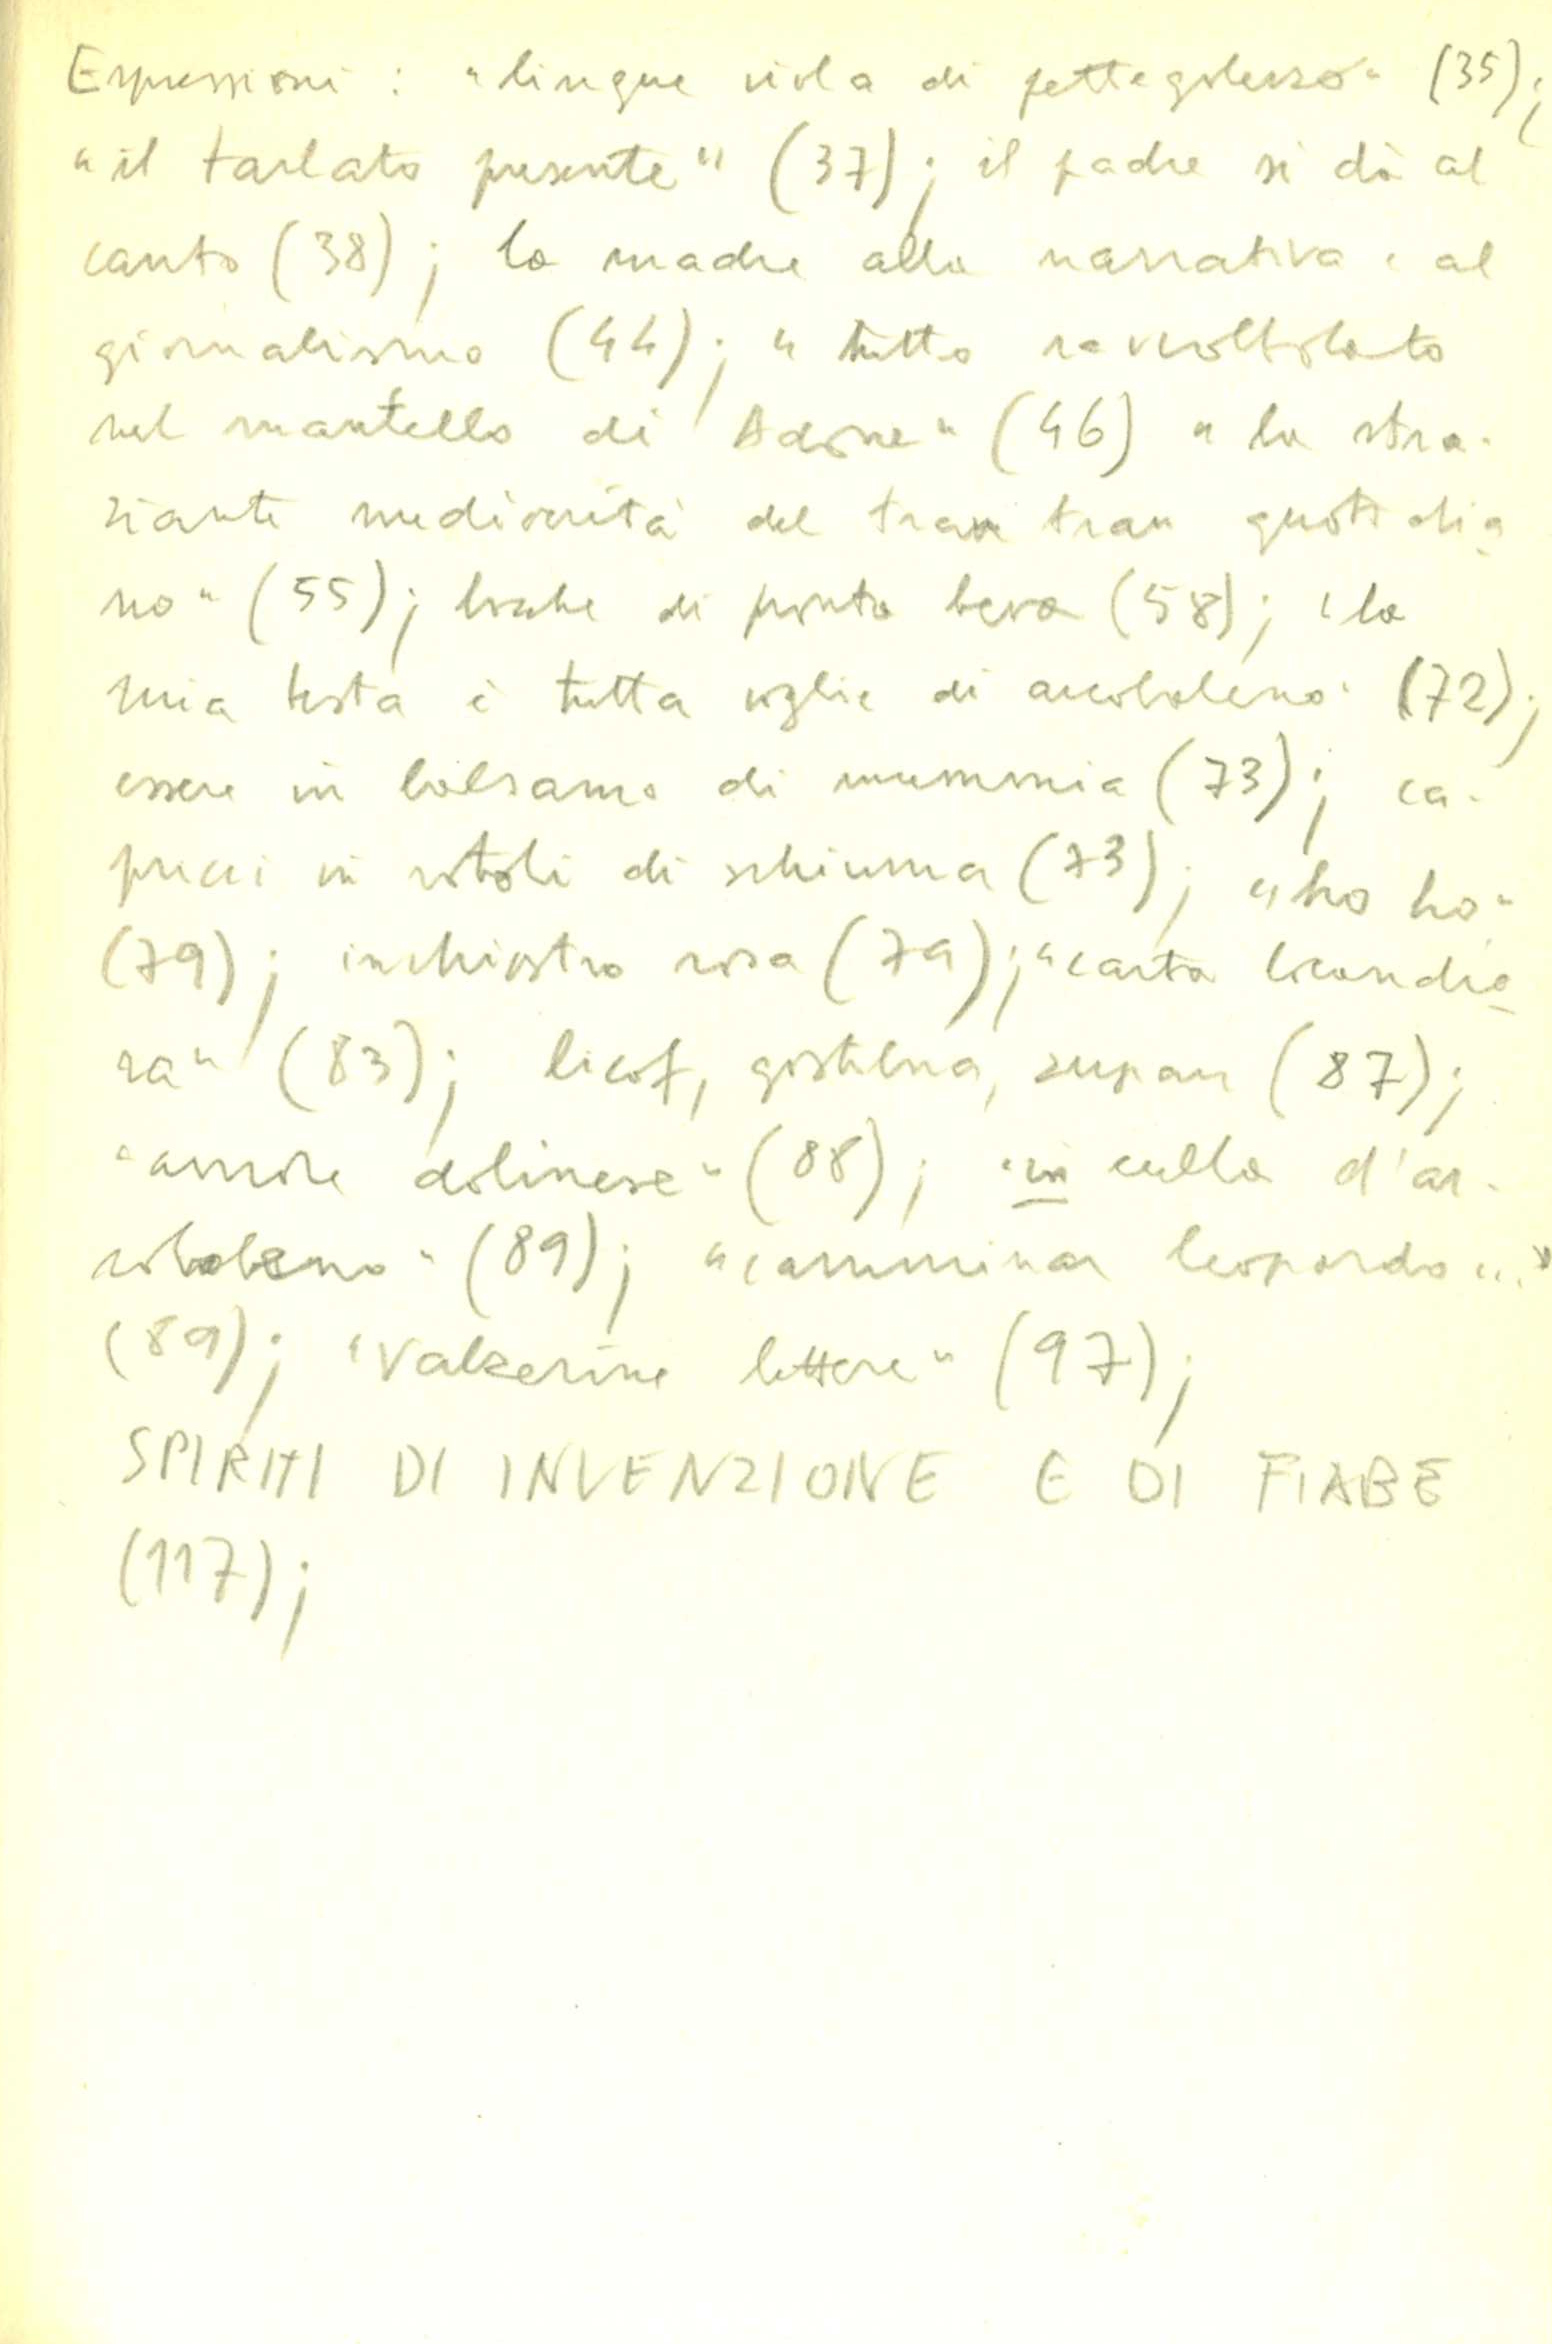 Espressioni : "lingue viola di pettegolezzo" (35);
"il tarlato presente" (37); il padre si dà al
canto (38); la madre alla narrativa e al
giornalismo (44); "tutto ravvoltolato
nel mantello di Adone" (46) "la stra-
ziante mediocrità del tran tran quotidia
no" (55); di (58); "la
mia testa è tutta voglie di arcobaleno" (72);
essere in balsamo di mummia (73); ca-
pricci in rotoli di schiuma (73); "ho ho"
(79); inchiostro rosa (79); "carta
ra" (83); licof, gostilna, zupan (87);
"amore dolinese" (88); "in culla d'ar-
cobaleno" (89); "camminar leopardo..."
(89); "Valzerine lettere" (97);
SPIRITI DI INVENZIONE E DI FIABE
(117);